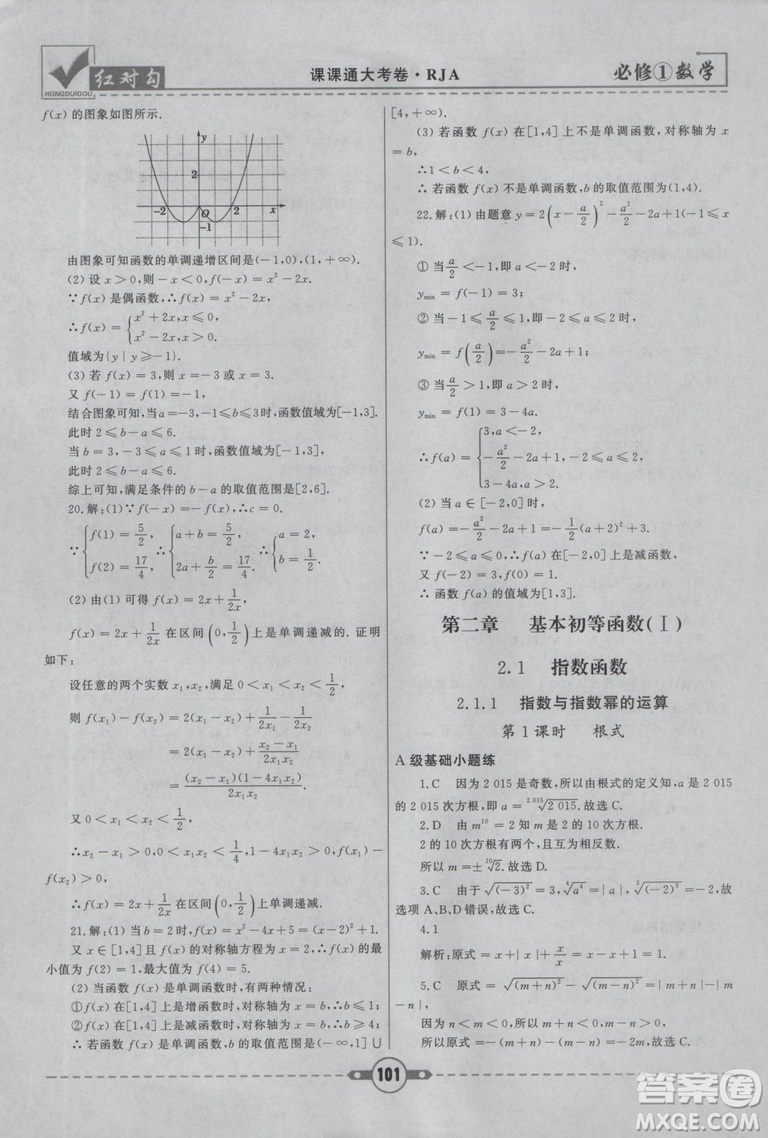 红对勾
HONGDUIGOU
课课通大考卷·RJA
必修①数学
f(x) 的图象如图所示.
y
2
-2
O
2
x
-1
由图象可知函数的单调递增区间是(-1,0),(1,+∞).
(2) 设 x>0,则-x<0,f(-x)=x²-2x.
∵f(x)是偶函数,∴f(x)=x²-2x.
∴f(x)={x²+2x,x≤0, x²-2x,x>0.
值域为{y|y≥-1}.
(3) 若 f(x)=3,则 x=-3 或 x=3.
又 f(-1)=f(1)=-1.
结合图象可知,当a=-3,-1≤b≤3时,函数值域为[-1,3].
此时 2≤b-a≤6.
当 b=3,-3≤a≤1 时,函数值域为[-1,3].
此时 2≤b-a≤6.
综上可知,满足条件的 b-a 的取值范围是[2,6].
20.解:(1)∵f(-x)=-f(x),∴c=0.
∵{f(1)=5/2, f(2)=17/4, ∴{a+b=5/2, 2a+b/2=17/4, ∴{a=2, b=1/2.
(2) 由(1) 可得 f(x)=2x+1/2x,
f(x)=2x+1/2x 在区间(0,1/2)上是单调递减的. 证明
如下:
设任意的两个实数 x₁,x₂,满足 0<x₁<x₂<1/2,
则 f(x₁)-f(x₂)=2(x₁-x₂)+1/2x₁-1/2x₂
=2(x₁-x₂)+(x₂-x₁)/2x₁x₂
=(x₂-x₁)(1-4x₁x₂)/2x₁x₂.
又 0<x₁<x₂<1/2,
∴x₂-x₁>0,0<x₁x₂<1/4,1-4x₁x₂>0,∴f(x₁)-
f(x₂)>0,
∴f(x)=2x+1/2x 在区间(0,1/2)上单调递减.
21.解:(1) 当 b=2 时,f(x)=x²-4x+5=(x-2)²+1.
又 x∈[1,4],且 f(x)的对称轴方程为 x=2,∴f(x)的最
小值为 f(2)=1,最大值为 f(4)=5.
(2) 当函数 f(x)是单调函数时,有两种情况:
①f(x) 在[1,4]上是增函数时,对称轴为 x=b≤1.
②f(x) 在[1,4]上是减函数时,对称轴为 x=b≥4.
∴若函数 f(x)是单调函数,则 b 的取值范围为(-∞,1]∪
[4,+∞).
(3) 若函数 f(x)在[1,4]上不是单调函数,对称轴为 x
=b,
∴1<b<4,
∴若函数 f(x) 不是单调函数,b 的取值范围为(1,4).
22.解:(1) 由题意 y=2(x-a/2)²-a²/2-2a+1(-1≤x
≤1).
①当 a/2<-1,即 a<-2 时,
y_min=f(-1)=3;
②当 -1≤a/2≤1,即-2≤a≤2 时,
y_min=f(a/2)=-a²/2-2a+1;
③当 a/2>1,即 a>2 时,
y_min=f(1)=3-4a.
∴f(a)={3,a<-2, -a²/2-2a+1,-2≤a≤2, 3-4a,a>2.
(2) 当 a∈[-2,0]时,
f(a)=-a²/2-2a+1=-1/2(a+2)²+3,
∵-2≤a≤0,∴f(a)在[-2,0]上是减函数.
又 f(-2)=3,f(0)=1.
∴函数 f(a)的值域为[1,3].
第二章 基本初等函数(Ⅰ)
2.1 指数函数
2.1.1 指数与指数幂的运算
第1课时 根式
A 级基础小题练
1.C 因为 2 015 是奇数,所以由根式的定义知,a 是 2 015
的 2 015 次方根,即 a=²⁰¹⁵√2 015.故选 C.
2.D 由 m¹⁰=2 知 m 是 2 的 10 次方根.
2 的 10 次方根有两个,且互为相反数.
所以 m=±¹⁰√2.故选 D.
3.C 由于√(-3)²=3,⁴√a⁴=|a|,³√(-2)³=-2,故
选项 A、B、D 错误,故选 C.
4.1
解析:原式=x+|x|+x/x=x-x+1=1.
5.C 原式=√(m+n)²-√(m-n)²=|m+n|-|m-n|,
因为 m<n<0,所以 m+n<0,m-n<0.
所以原式=-(m+n)+(m-n)=-2n.
101
答案圈
MXQE.COM